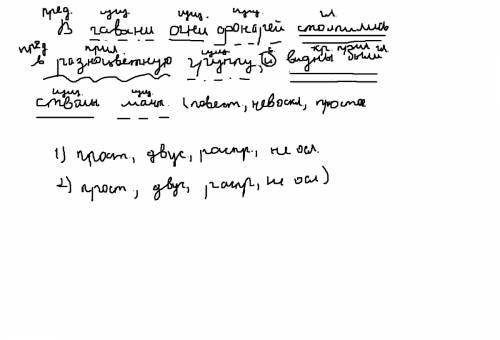 пред. сущ. сущ. сущ. гл.
В гавани огни фонарей столпились
пред прил. сущ. кр. прил гл
в разноцветную группу, и видны были
сущ. сущ.
стволы мачт. (повест, невоскл, простое
1) прост, двус, распр., не осл.
2) прост, двус, распр, не осл)